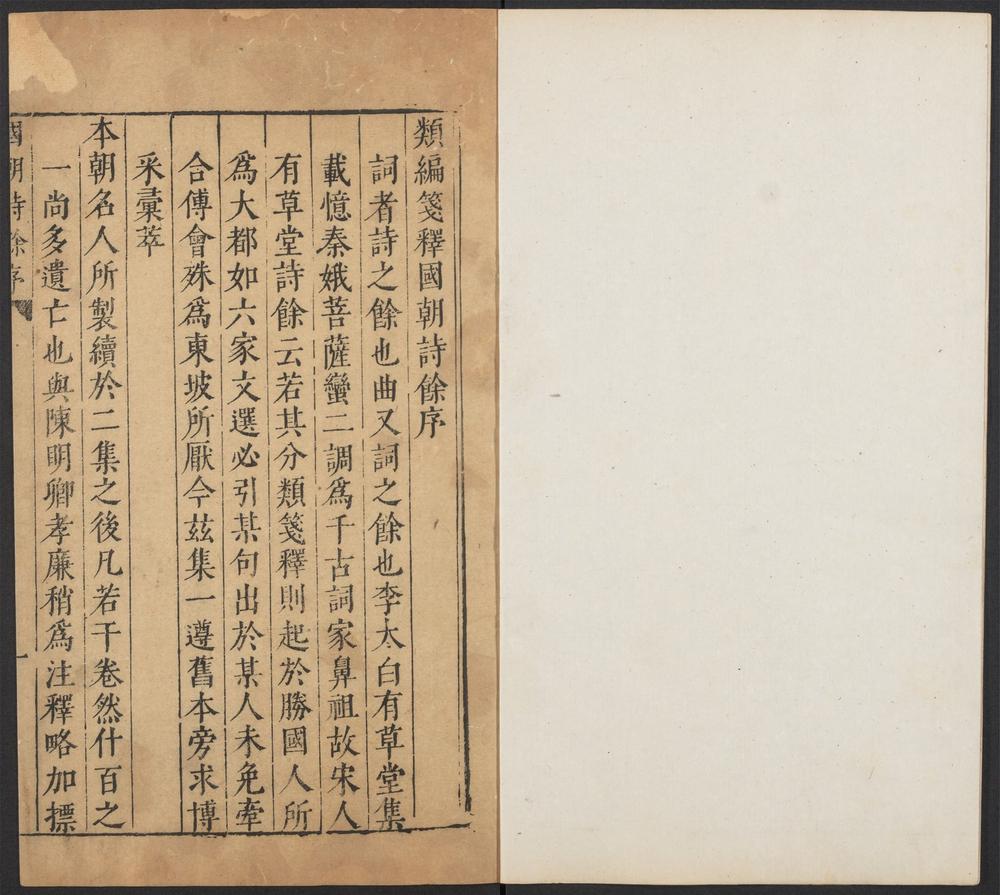 類編箋釋國朝詩餘序
詞者詩之餘也曲又詞之餘也李太白有草堂集
載憶秦娥菩薩蠻二調爲千古詞家鼻祖故宋人
有草堂詩餘云若其分類箋釋則起於勝國人所
爲大都如六家文選必引某句出於某人未免牽
合傅會殊爲東坡所厭今茲集一遵舊本旁求博
采彚萃
本朝名人所製續於二集之後凡若干卷然什百之
一尚多遺亡也與陳明卿孝廉稍爲注釋略加摽
國朝詩餘序
一